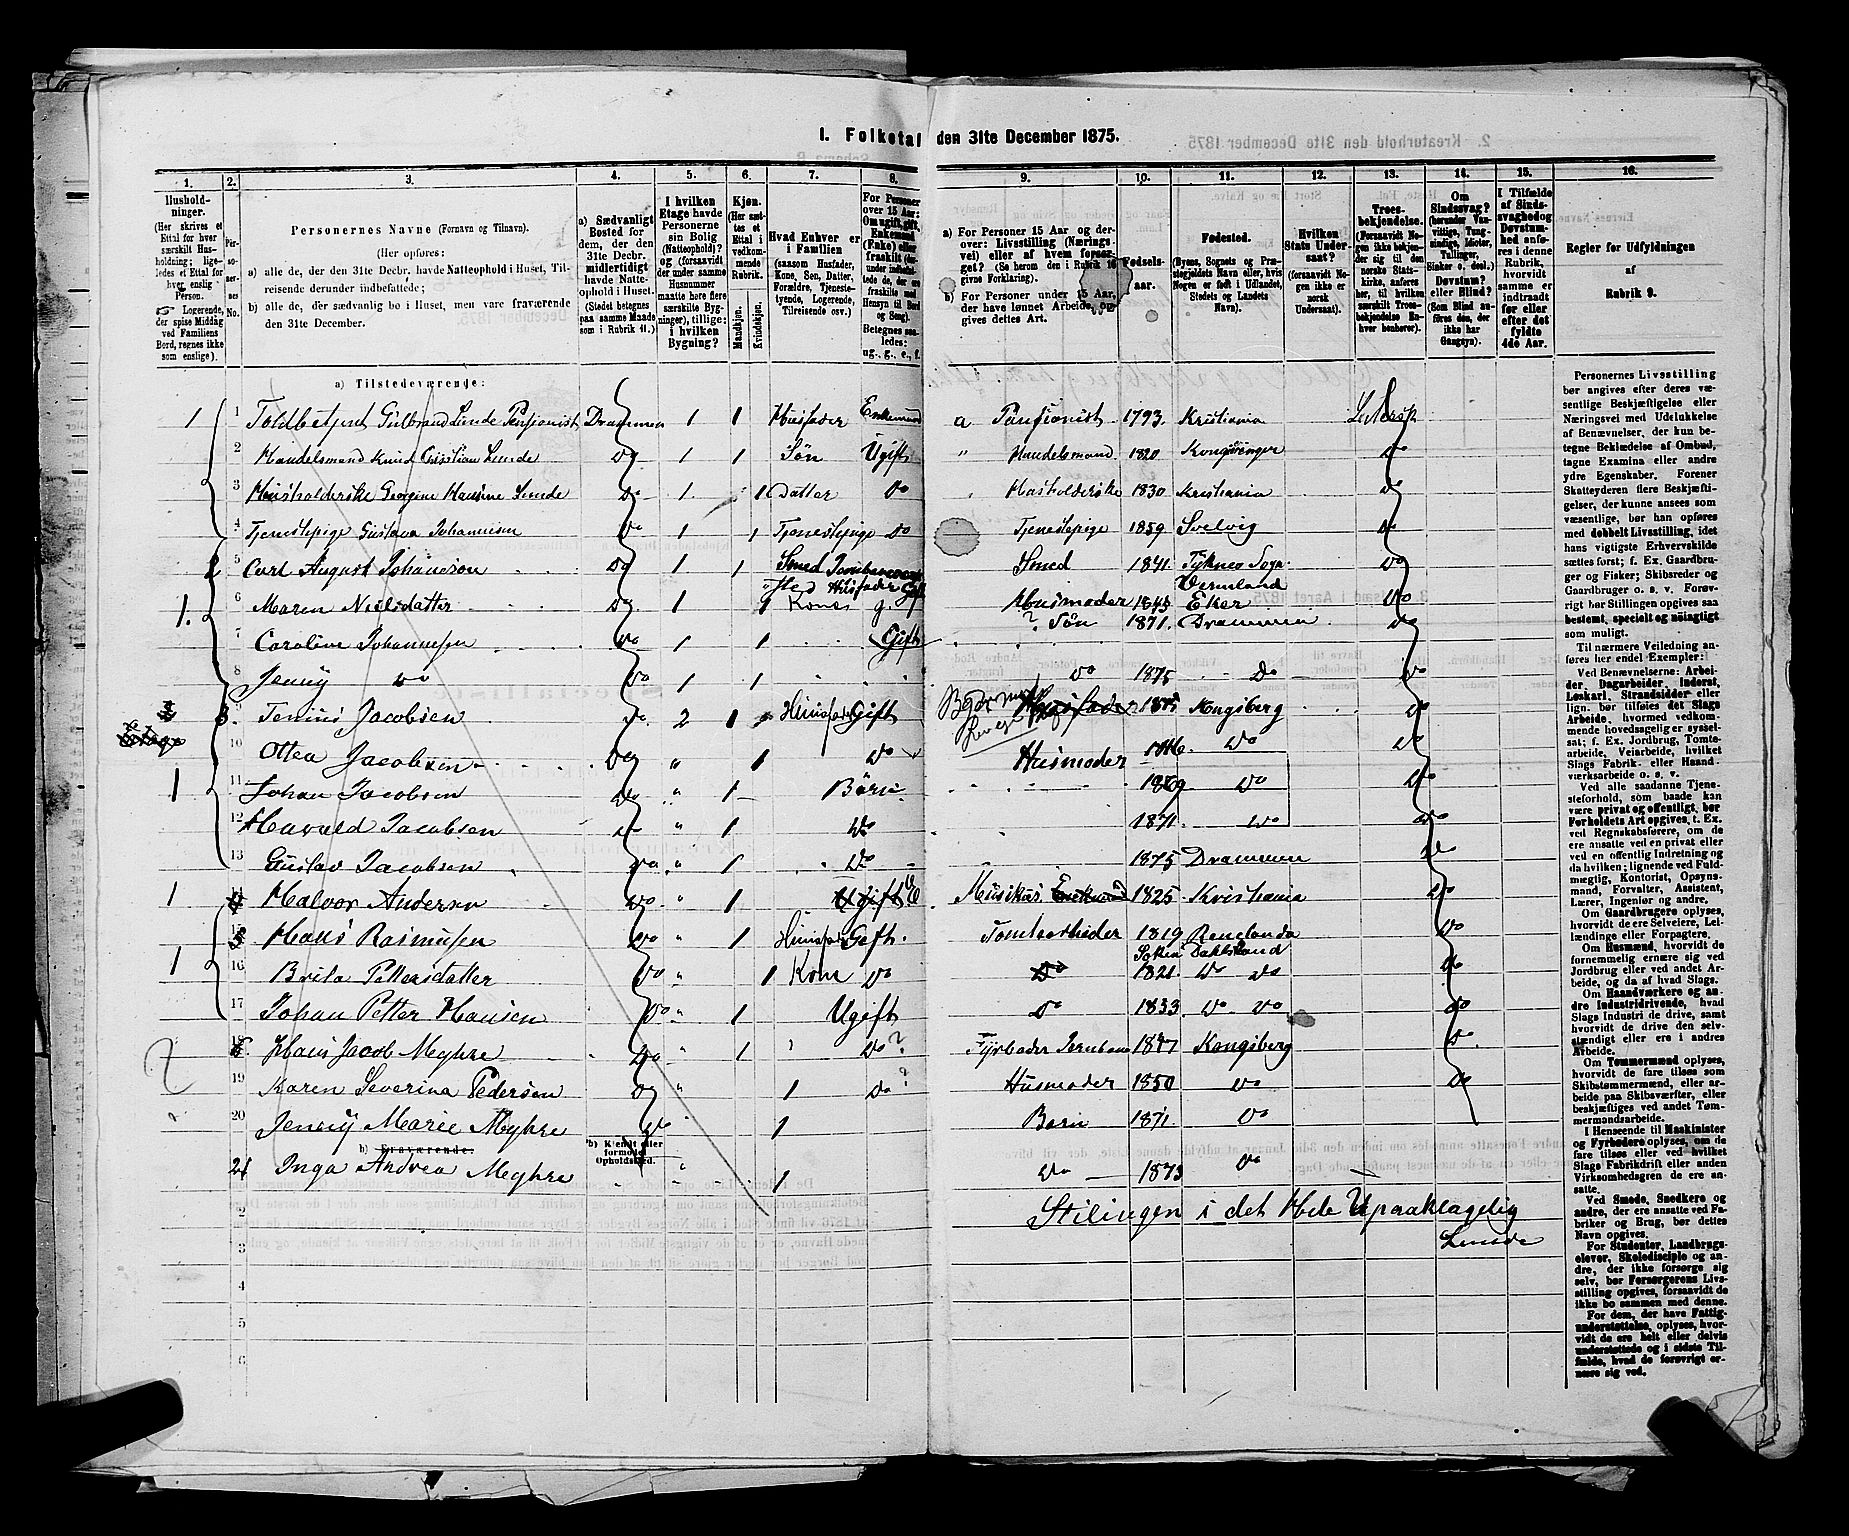 1. Folketal den 31te December 1875.
1. 2. 3. 4. 5. 6. 7. 8. 9. 10. 11. 12. 13. 14. 15. 16.
Husholdninger. (Her skrives et Ettal for hver særskilt Husholdning; ligeledes et Ettal for hver enslig Person. Logerende, der spise Middag ved Familiens Bord, regnes ikke som enslige).
Personernes No.
Personernes Navne (Fornavn og Tilnavn).
(Her opføres:
a) alle de, der den 31te Decbr. havde Natteophold i Huset, Tilreisende derunder indbefattede;
b) alle de, der sædvanlig bo i Huset, men vare fraværende den 31te December.
a) Sædvanligt Bosted for dem, der den 31te Decbr. midlertidigt havde Natteophold i Huset. (Stedet betegnes paa samme Maade som i Rubrik 11.)
I hvilken Etage havde Personerne sin Bolig (Natteophold)? og (forsaavidt der under samme Husnummer maatte høre flere særskilte Bygninger), tillige: i hvilken Bygning?
Kjøn. (Her sættes et Ettal i vedkommende Rubrik. Mandkjøn. Kvindekjøn.
Hvad Enhver er i Familien (saasom Husfader, Kone, Søn, Datter, Forældre, Tjenestetyende, Logerende, Tilreisende osv.)
For Personer over 15 Aar: Om ugift, gift, Enkemand (Enke) eller fraskilt
Betegnes saaledes: ug., g., e., f.
a) For Personer 15 Aar og derover: Livsstilling (Næringsvei) eller af hvem forsørget? (Se herom den i Rubrik 16 givne Forklaring).
b) For Personer under 15 Aar, der have lønnet Arbeide, opgives dettes Art.
Fødselsaar.
Fødested. (Byens, Sognets og Præstegjeldets Navn eller, hvis Nogen er født i Udlandet, Stedets og Landets Navn).
Hvilken Stats Undersaat? (forsaavidt Nogen ikke er norsk Undersaat).
Troesbekjendelse. (Forsaavidt Nogen ikke bekjender sig til den norske Statskirke, anføres her, til hvilken særskilt Troesbekjendelse Enhver benhører).
Om Sindssvag? (herunder Vanvittige, Tungsindige, Idioter, Tullinger, Sinker o. desl.) Døvstum? eller Blind? (Som Blind anføres den, der ikke har Gangsyn).
I Tilfælde af Sindssvaghed og Døvstumhed anføres i denne Rubrik, hvorvidt samme er indtraadt før eller efter det fyldte 4de Aar.
Regler for Udfyldningen af Rubrik 9.
a) Tilstedeværende:
1 1 Toldbetjent Gulbrand Lunde Pensjonist Drammen 1 1 Husfader Enkemand a Pansionist 1793. Kristiania
2 Handelsmand Knud Christian Lunde Do 1 1 Søn Ugift " Handelsmand 1820 Kongsvinger Do
3 Husholderske Georgine Hansine Lunde Do 1 1 Datter Do Husholderske 1830 Kristiania Do
4 Tjenestepige Gustava Johannesen Do 1 1 Tjenestepige Do Tjenestepige 1859 Svelvig Do
5 Carl August Johansson Do 1 1 Smed Husfader Gift Smed 1841 Vermland Do
1. 6 Maren Nielsdatter Do 1 1 Kone g. Husmoder 1845 Eker Do
7 Caroline Johannesen Do 1 1 Gift ? Søn 1871. Drammen Do
8 Jenny do Do 1 1 Do 1875 Do Do
9 Tenius Jacobsen Do 2 1 Husfader Gift Husfader Kongsberg Do
10 Ottea Jacobsen Do " 1 Do Husmoder 1846. Do Do
1 11 Johan Jacobsen Do " 1 Børn 1869 Do Do
12 Harald Jacobsen Do " 1 Do 1871. Do Do
13 Gustav Jacobsen Do " 1 Do 1875 Drammen Do
1 14 Halvor Andersen Do " 1 Ugift Musikus Enkemand 1825 Kristiania Do
15 Hans Rasmusen Do " 1 Husfader Gift. Tomtearbeider 1819 Do
1 16 Brita Pettersdatter Do " 1 Kone Do Do 1821. Do Do Do
17 Johan Petter Hansen Do " 1 Ugift Do 1853 Do Do Do
18 Hans Jacob Meyhre Do " 1 Do ? Fyrbøder Jernbane Kongsberg Do
19 Karen Severina Pedersen Do " 1 Do ? Husmoder 1850 Do Do
20 Jenny Marie Meyhre Do " 1 Barn 1871. Do
b) Fraværende: b) Kjendt eller formodet Opholdssted.
21 Inga Andrea Meyhre " 1 Do 1873 Do
2 Stilingen i det Hele Upaaklagelig
3 Lunde
4
5
6
Personernes Livsstilling bør angives efter deres væsentlige Beskjæftigelse eller Næringsvei med Udelukkelse af Benævnelser, der kun betegne Beklædelse af Ombud, tagne Examina eller andre ydre Egenskaber. Forener Skatteyderen flere Beskjæftigelser, der kunne ansees som væsentlige, bør han opføres med dobbelt Livsstilling, idet hans vigtigste Erhvervskilde sættes først; f. Ex. Gaardbruger og Fisker; Skibsreder og Gaardbruger o. s. v. Forøvrigt bør Stillingen opgives saa bestemt, specielt og nøiagtigt som muligt.
Til nærmere Veiledning anføres her endel Exempler:
Ved Benævnelserne: Arbeider, Dagarbeider, Inderst, Løskarl, Strandsidder eller lign. bør tilføies det Slags Arbeide, hvormed vedkommende hovedsagelig er sysselsat; f. Ex. Jordbrug, Tomtearbeide, Veiarbeide, hvilket Slags Fabrik- eller Haandværksarbeide o. s. v.
Ved alle saadanne Tjenesteforhold, som baade kan være privat og offentligt, bør Forholdets Art opgives, t. Ex. ved Regnskabsførere, om de ere ansatte ved en privat eller ved en offentlig Indretning og da hvilken; lignende ved Fuldmægtig, Kontorist, Opsynsmand, Forvalter, Assistent, Lærer, Ingeniør og andre.
Om Gaardbrugere oplyses, hvorvidt de ere Selveiere, Leilændinge eller Forpagtere.
Om Husmænd, hvorvidt de fornemmelig ernære sig ved Jordbrug eller ved andet Arbeide, og da af hvad Slags.
Om Haandværkere og andre Industridrivende, hvad Slags Industri de drive, samt hvorvidt de drive den selvstændigt eller ere i andres Arbeide.
Om Tømmermænd oplyses, hvorvidt de fare tilsøs som Skibstømmermænd, eller arbeide paa Skibsværfter, eller beskjæftiges ved andet Tømmermandsarbeide.
I Henseende til Maskinister og Fyrbødere oplyses, om de fare tilsøs eller ved hvilket Slags Fabrikdrift eller anden Virksomhedsgren de ere ansatte.
Ved Smede, Snedkere og andre, der ere ansatte ved Fabriker og Brug, bør dettes Navn opgives.
For Studenter, Landbrugselever, Skoledisciple og andre, der ikke forsørge sig selv, bør Forsørgerens Livsstilling opgives, forsaavidt de ikke bo sammen med denne.
For dem, der have Fattigunderstøttelse, oplyses, hvorvidt de ere helt eller delvis understøttede og i sidste Tilfælde, hvad de forøvrigt ernære sig ved.